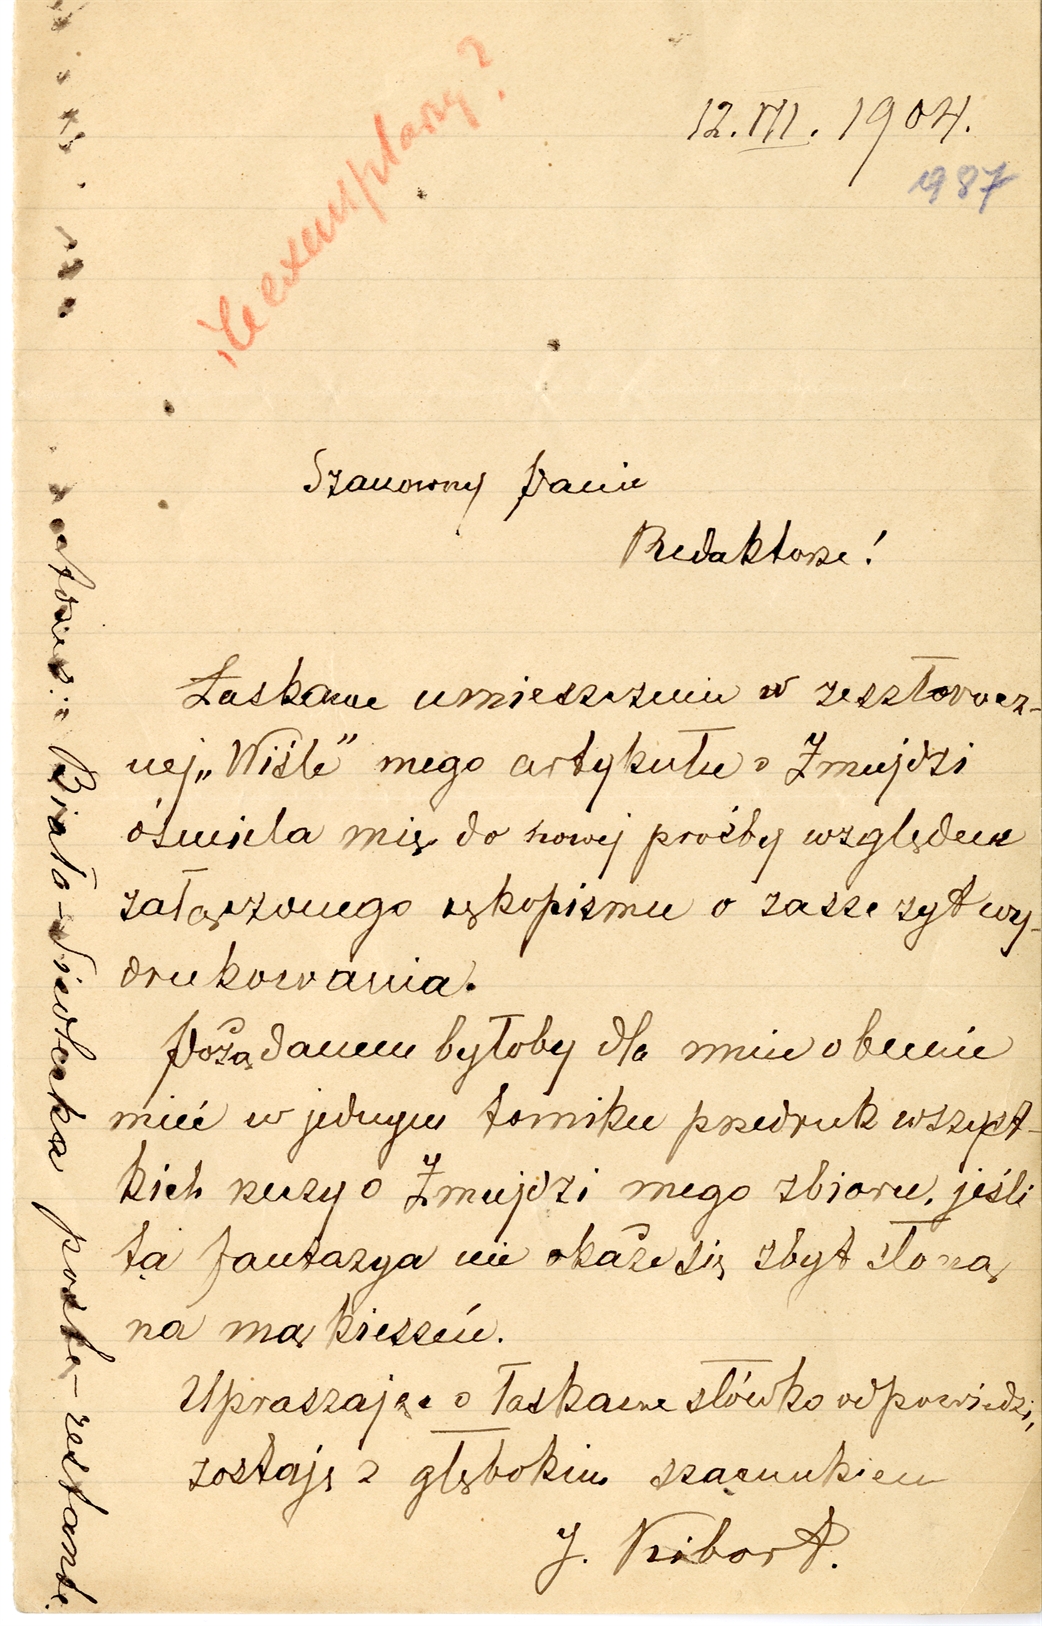 12.VII. 1904.
1987
ile exemplarzy?
Szanowny Panie
Redaktorze!
Łaskawe umieszczenie w zeszłorocz-
nej „Wiśle” mego artykułu o Żmujdzi
óśmiela mię do nowej prośby względem
załączonego rękopismu o zaszczyt wy-
drukowania.
Pożądanem byłoby dla mnie obecnie
mieć w jednym tomiku przedruk wszyst-
kich rzczy o Żmujdzi mego zbioru, jeśli
ta fantazya nie okaże się zbyt słoną
na mą kieszeń.
Upraszając o łaskawe słówko odpowiedzi,
zostaję z głębokim szacunkiem
J. Kibort.
Biała-Siedlecka poste-restante.